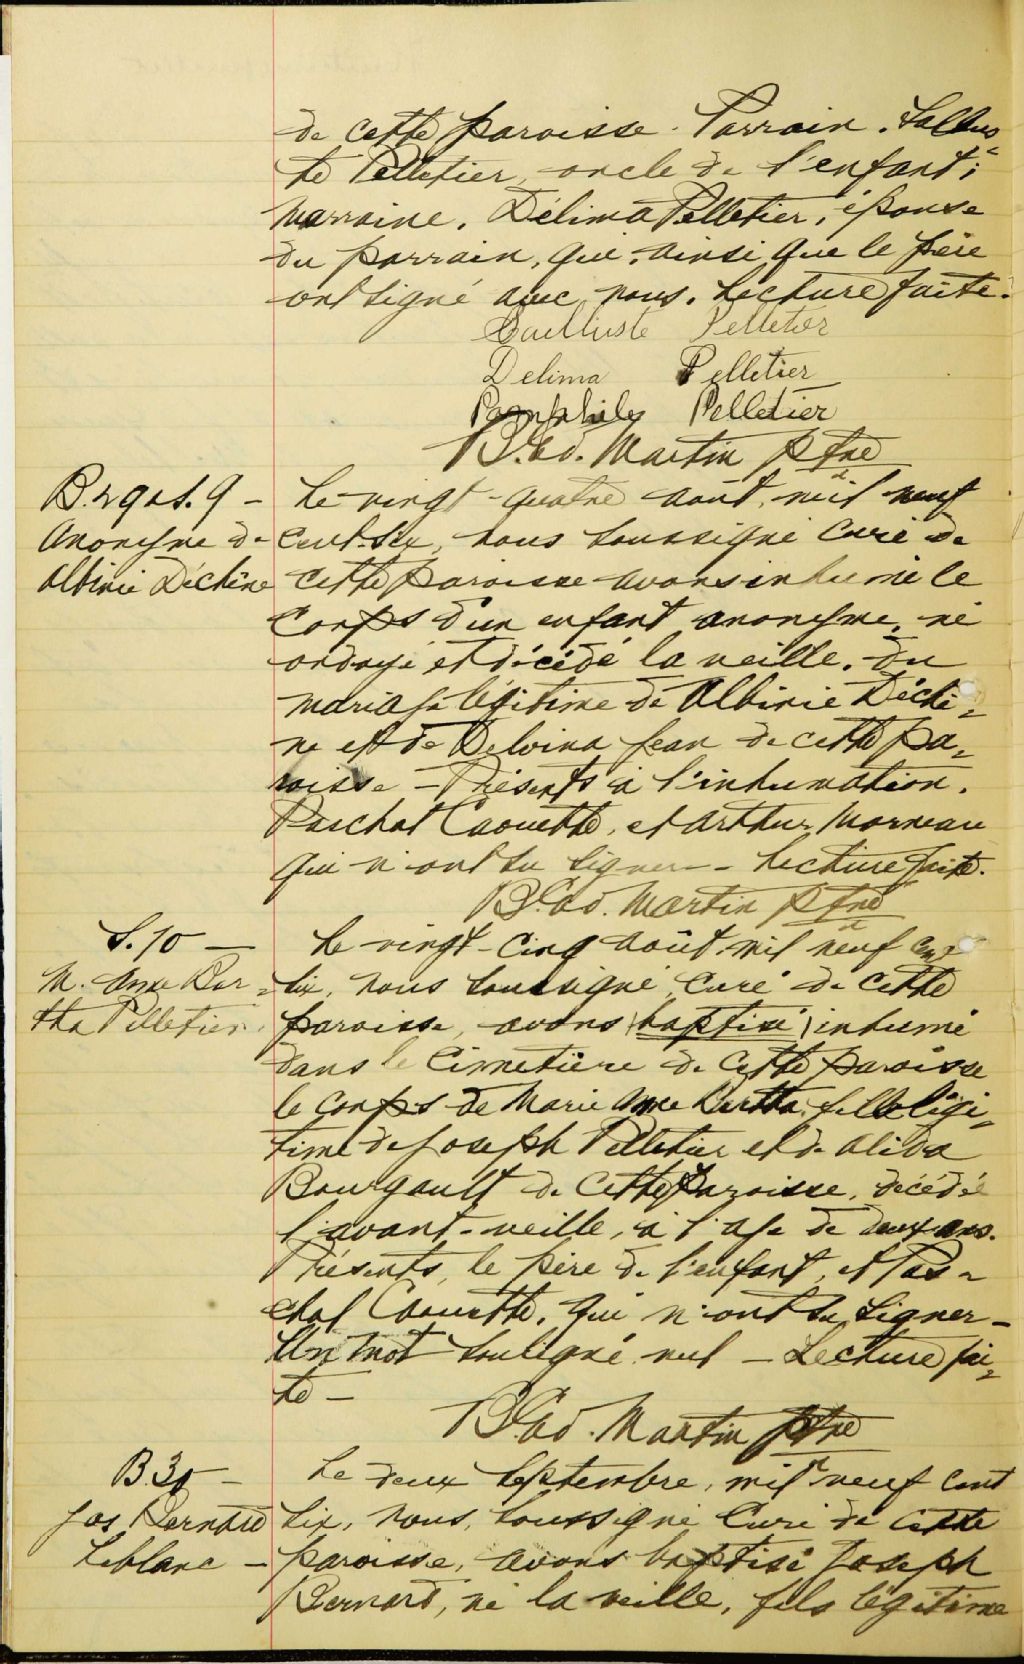 de cette paroisse. Parrain, Sallus-
te Pelletier, oncle de l'enfant;
marraine, Délima Pelletier, épouse
du parrain, qui, ainsi que le père
ont signé avec nous. Lecture faite.
Salluste Pelletier
Delima Pelletier
Pamphile Pelletier
B. Ed. Martin ptre
B. 29 et S. 9 -
Anonyme de
Albinie Déchêne
Le vingt-quatre août, mil neuf
cent-six, nous soussigné curé de
cette paroisse avons inhumé le
corps d'un enfant anonyme, né
ondoyé et décédé la veille, du
mariage légitime de Albinie Déchê-
ne et de Delvina Jean de cette pa-
roisse - Présents à l'inhumation.
Paschal Caouette, et Arthur Morneau
qui n'ont su signer - Lecture faite.
B. Ed. Martin ptre
S. 10 -
M. Anne Ber-
tha Pelletier.
Le vingt-cinq août mil neuf cent
six, nous soussigné, curé de cette
paroisse, avons baptisé inhumé
dans le cimetière de cette paroisse
le corps de Marie Anne Bertha, fille légi-
time de Joseph Pelletier et de Alida
Bourgault de cette paroisse, décédée
l'avant-veille, à l'age de deux ans.
Présents, le père de l'enfant, et Pas-
chal Caouette, qui n'ont su signer -
Un mot souligné nul - Lecture fai-
te -
B. Ed. Martin ptre
B 30 -
Jos Bernard
Leblanc -
Le deux septembre, mil neuf cent
six, nous, soussigné curé de cette
paroisse, avons baptisé Joseph
Bernard, né la veille, fils légitime